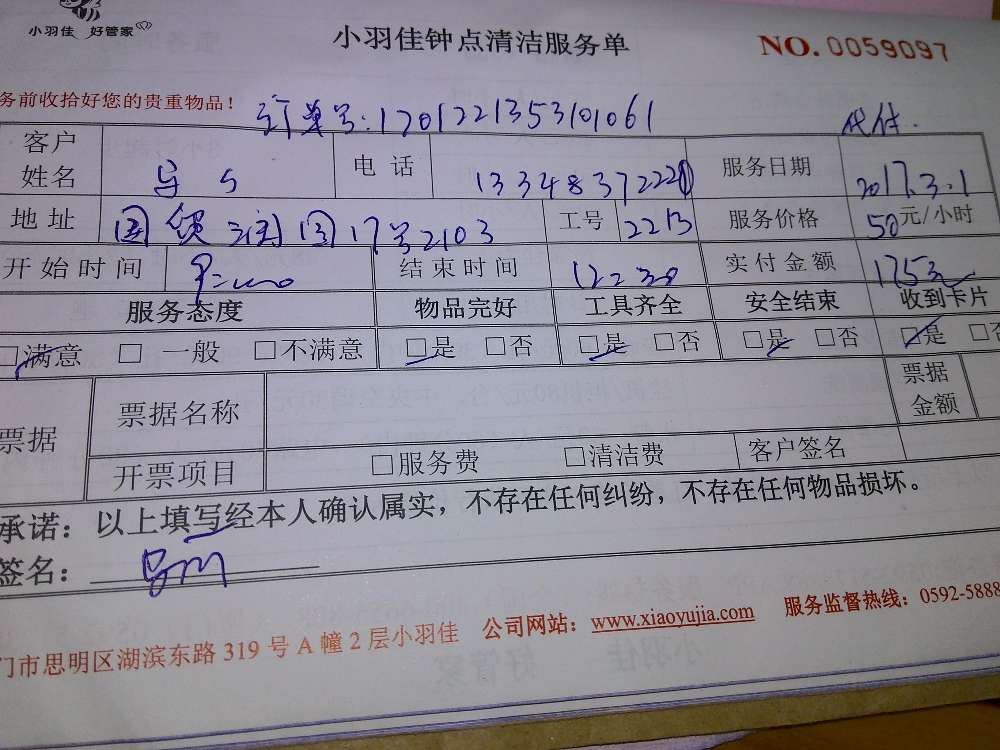 小羽佳 好管家
小羽佳钟点清洁服务单
NO. 0059097
务前收拾好您的贵重物品！
订单号:1701221353101061
代付.
客户姓名
电话
服务日期 2017.3.1
地址 国贸 17号2103
工号 2213
服务价格 50元/小时
开始时间
结束时间
实付金额
服务态度 物品完好 工具齐全 安全结束 收到卡片
□满意 □ 一般 □不满意 □是 □否 □是 □否 □是 □否 □是 □否
票据 票据名称 票据金额
开票项目 □服务费 □清洁费 客户签名
承诺：以上填写经本人确认属实，不存在任何纠纷，不存在任何物品损坏。
签名：
门市思明区湖滨东路 319 号 A 幢 2 层小羽佳 公司网站：www.xiaoyujia.com 服务监督热线：0592-5888